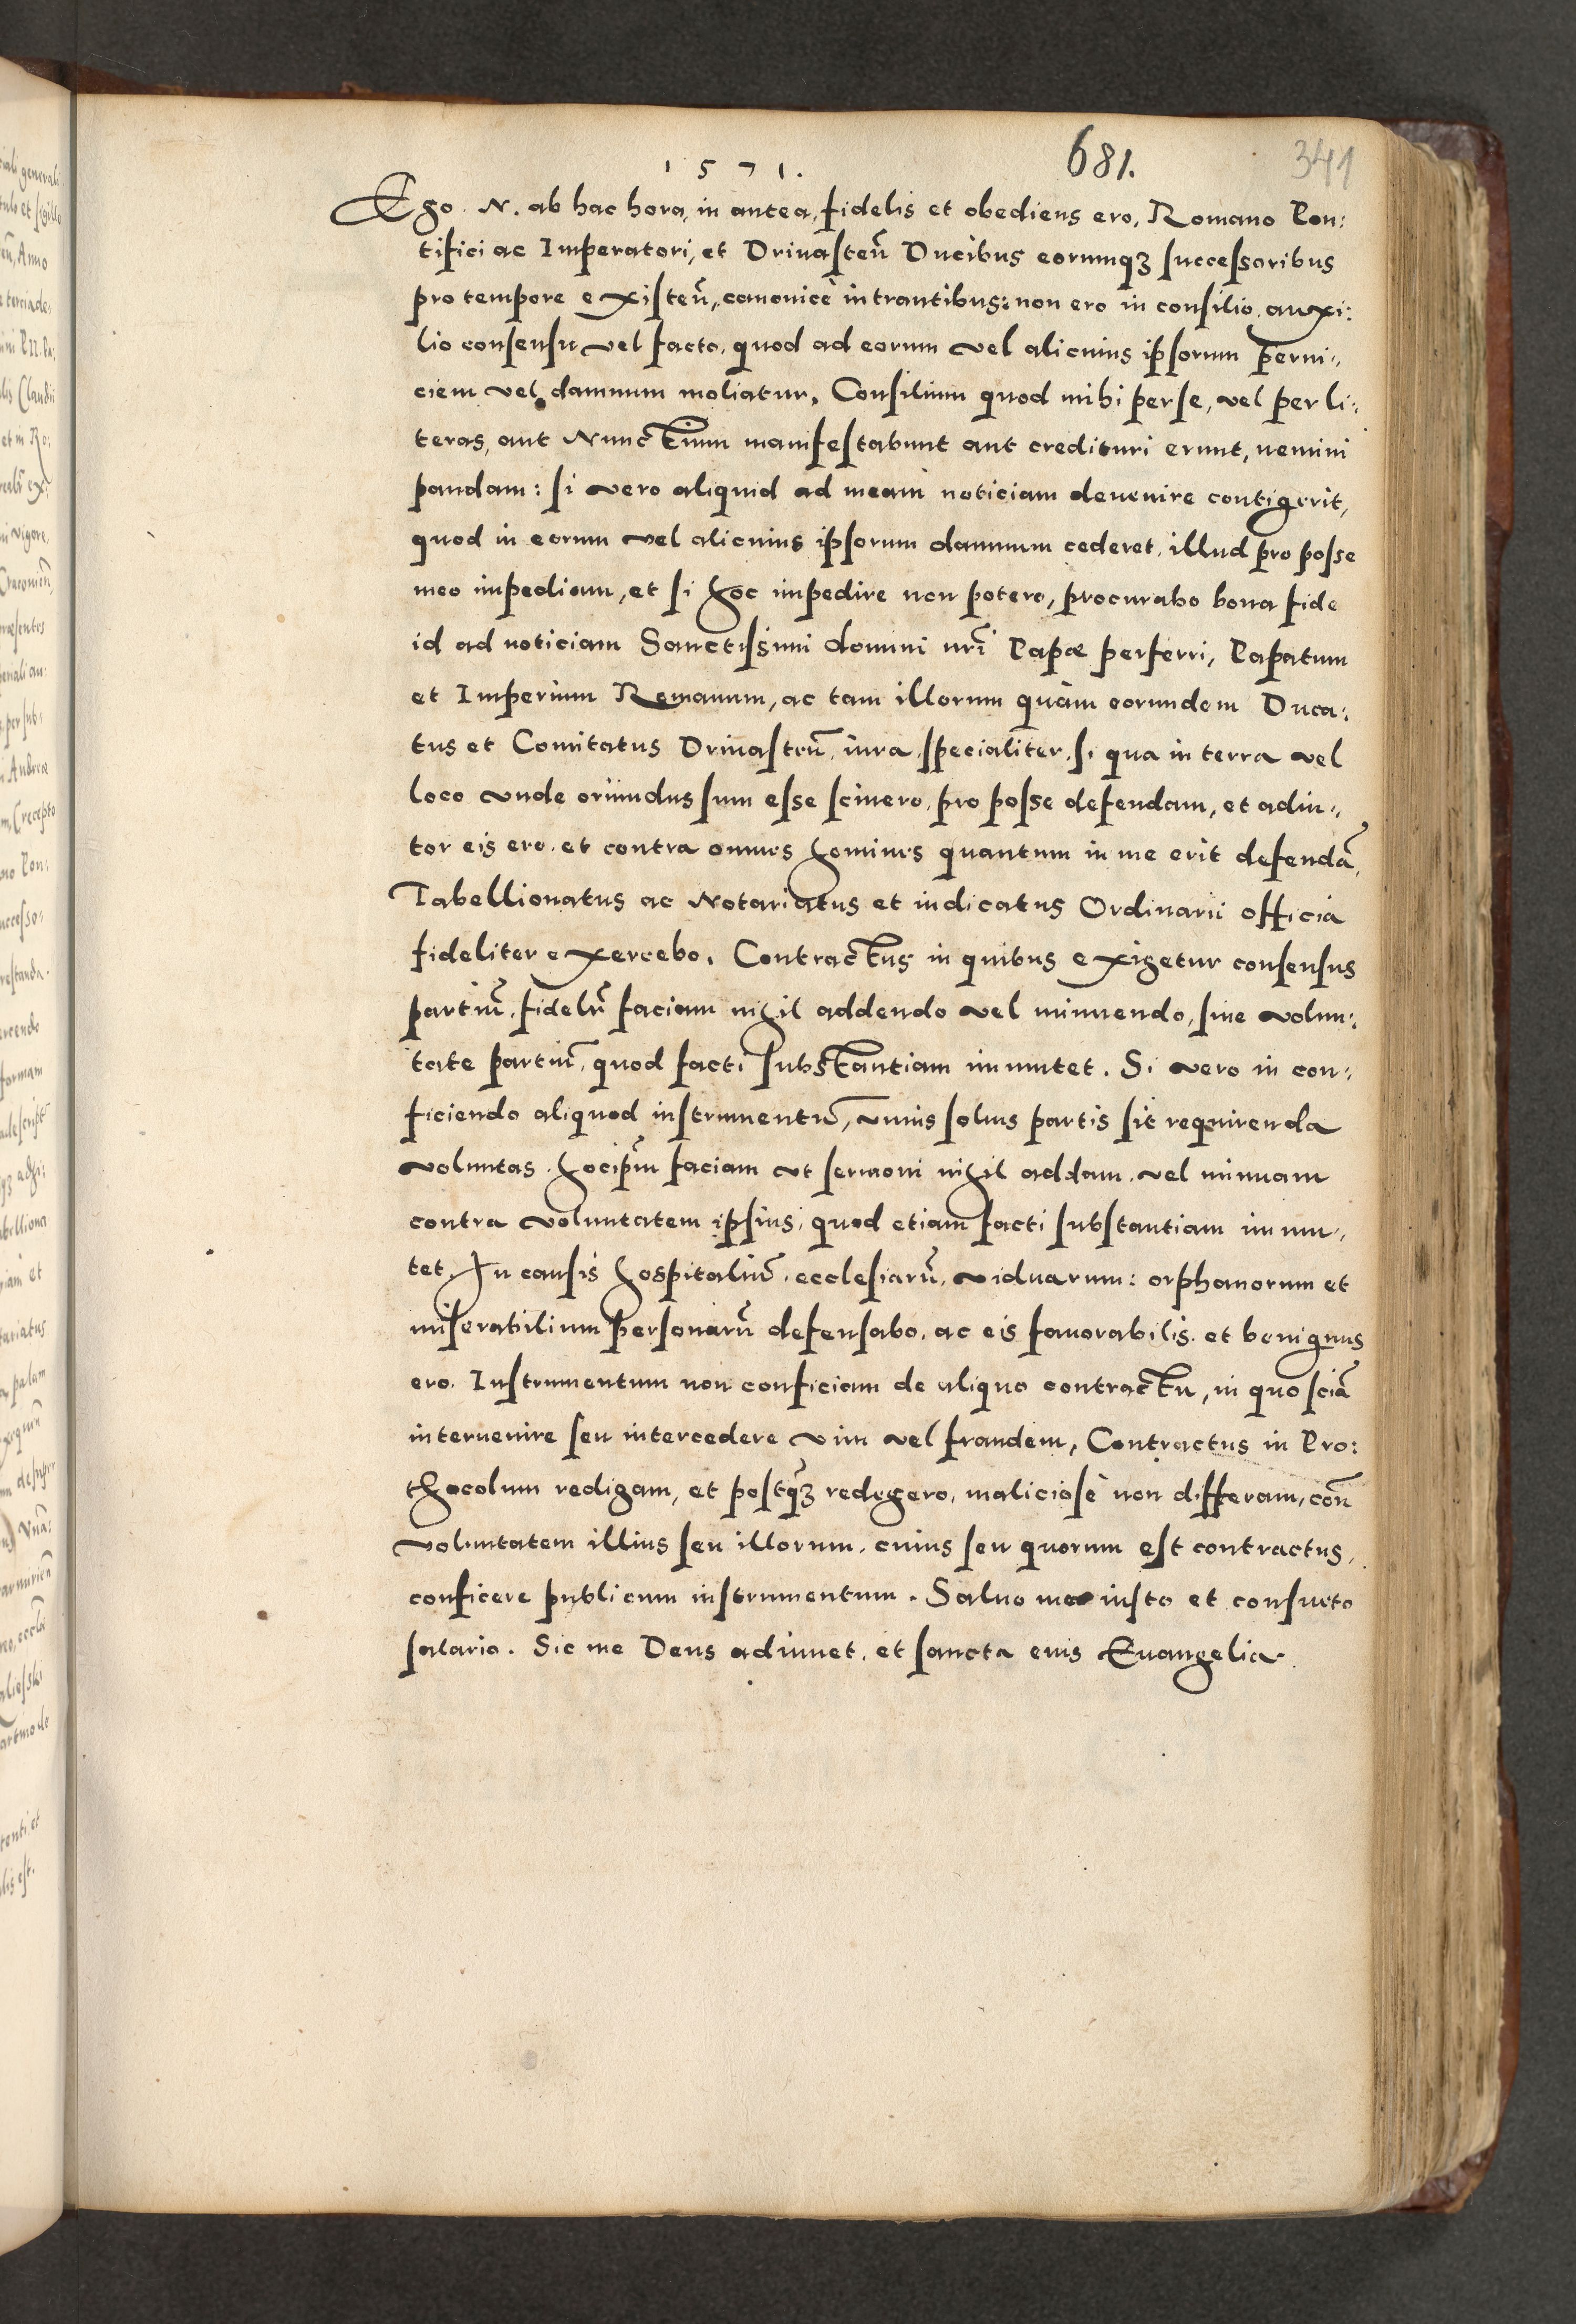 1571.
681.
341
Ego. N. ab hac hora, in antea, fidelis et obediens ero, Romano Pon:
tifici ac Imperatori, et Drivasteñ Ducibus eorumqꝫ successoribus
pro tempore existeñ, canonicè intrantibus: non ero in consilio, auxi:
lio consensu vel facto, quod ad eorum vel alicuius ipsorum perni:
ciem vel damnum moliatur, Consilium quod mihi per se, vel per li:
teras, aut Nunctium manifestabunt aut credituri erunt, nemini
pandam: si vero aliquid ad meam noticiam deuenire contigerit,
quod in eorum vel alicuius ipsorum damnum cederet, illud pro posse
meo impediam, et si hoc impedire non potero, procurabo bona fide
id ad noticiam Sanctissimi domini nrĩ Papæ perferri, Papatum
et Imperium Romanum, ac tam illorum quàm eorundem Duca:
tus et Comitatus Drivasteñ, iura, specialiter, si qua in terra vel
loco vnde oriundus sum esse sciuero, pro posse defendam, et adiu:
tor eis ero, et contra omnes homines quantum in me erit defendã,
Tabellionatus ac Notariatus et iudicatus Ordinarii officia
fideliter exercebo. Contractus in quibus exigetur consensus
partiũ, fidelr̃ faciam nihil addendo vel minuendo, sine volun:
tate partiũ, quod facti substantiam immutet. Si vero in con:
ficiendo aliquod instrumentũ, vnius solius partis sit requirenda
voluntas, hocip̃m faciam vt sermoni nihil addam, vel minuam
contra voluntatem ipsius, quod etiam facti substantiam immu:
tet, In causis hospitaliũ, ecclesiarũ, viduarum: orphanorum et
miserabilium personarũ defensabo, ac eis fauorabilis, et benignus
ero. Instrumentum non conficiam de aliquo contractu, in quo sciã
interuenire seu intercedere vim vel fraudem, Contractus in Pro:
thocolum redigam, et postq̃ꝫ redegero, maliciosè non differam, coñ
voluntatem illius seu illorum, cuius seu quorum est contractus,
conficere publicum instrumentum. Saluo meo iusto et consueto
salario. Sic me Deus adiuuet, et sancta eius Euangelia.